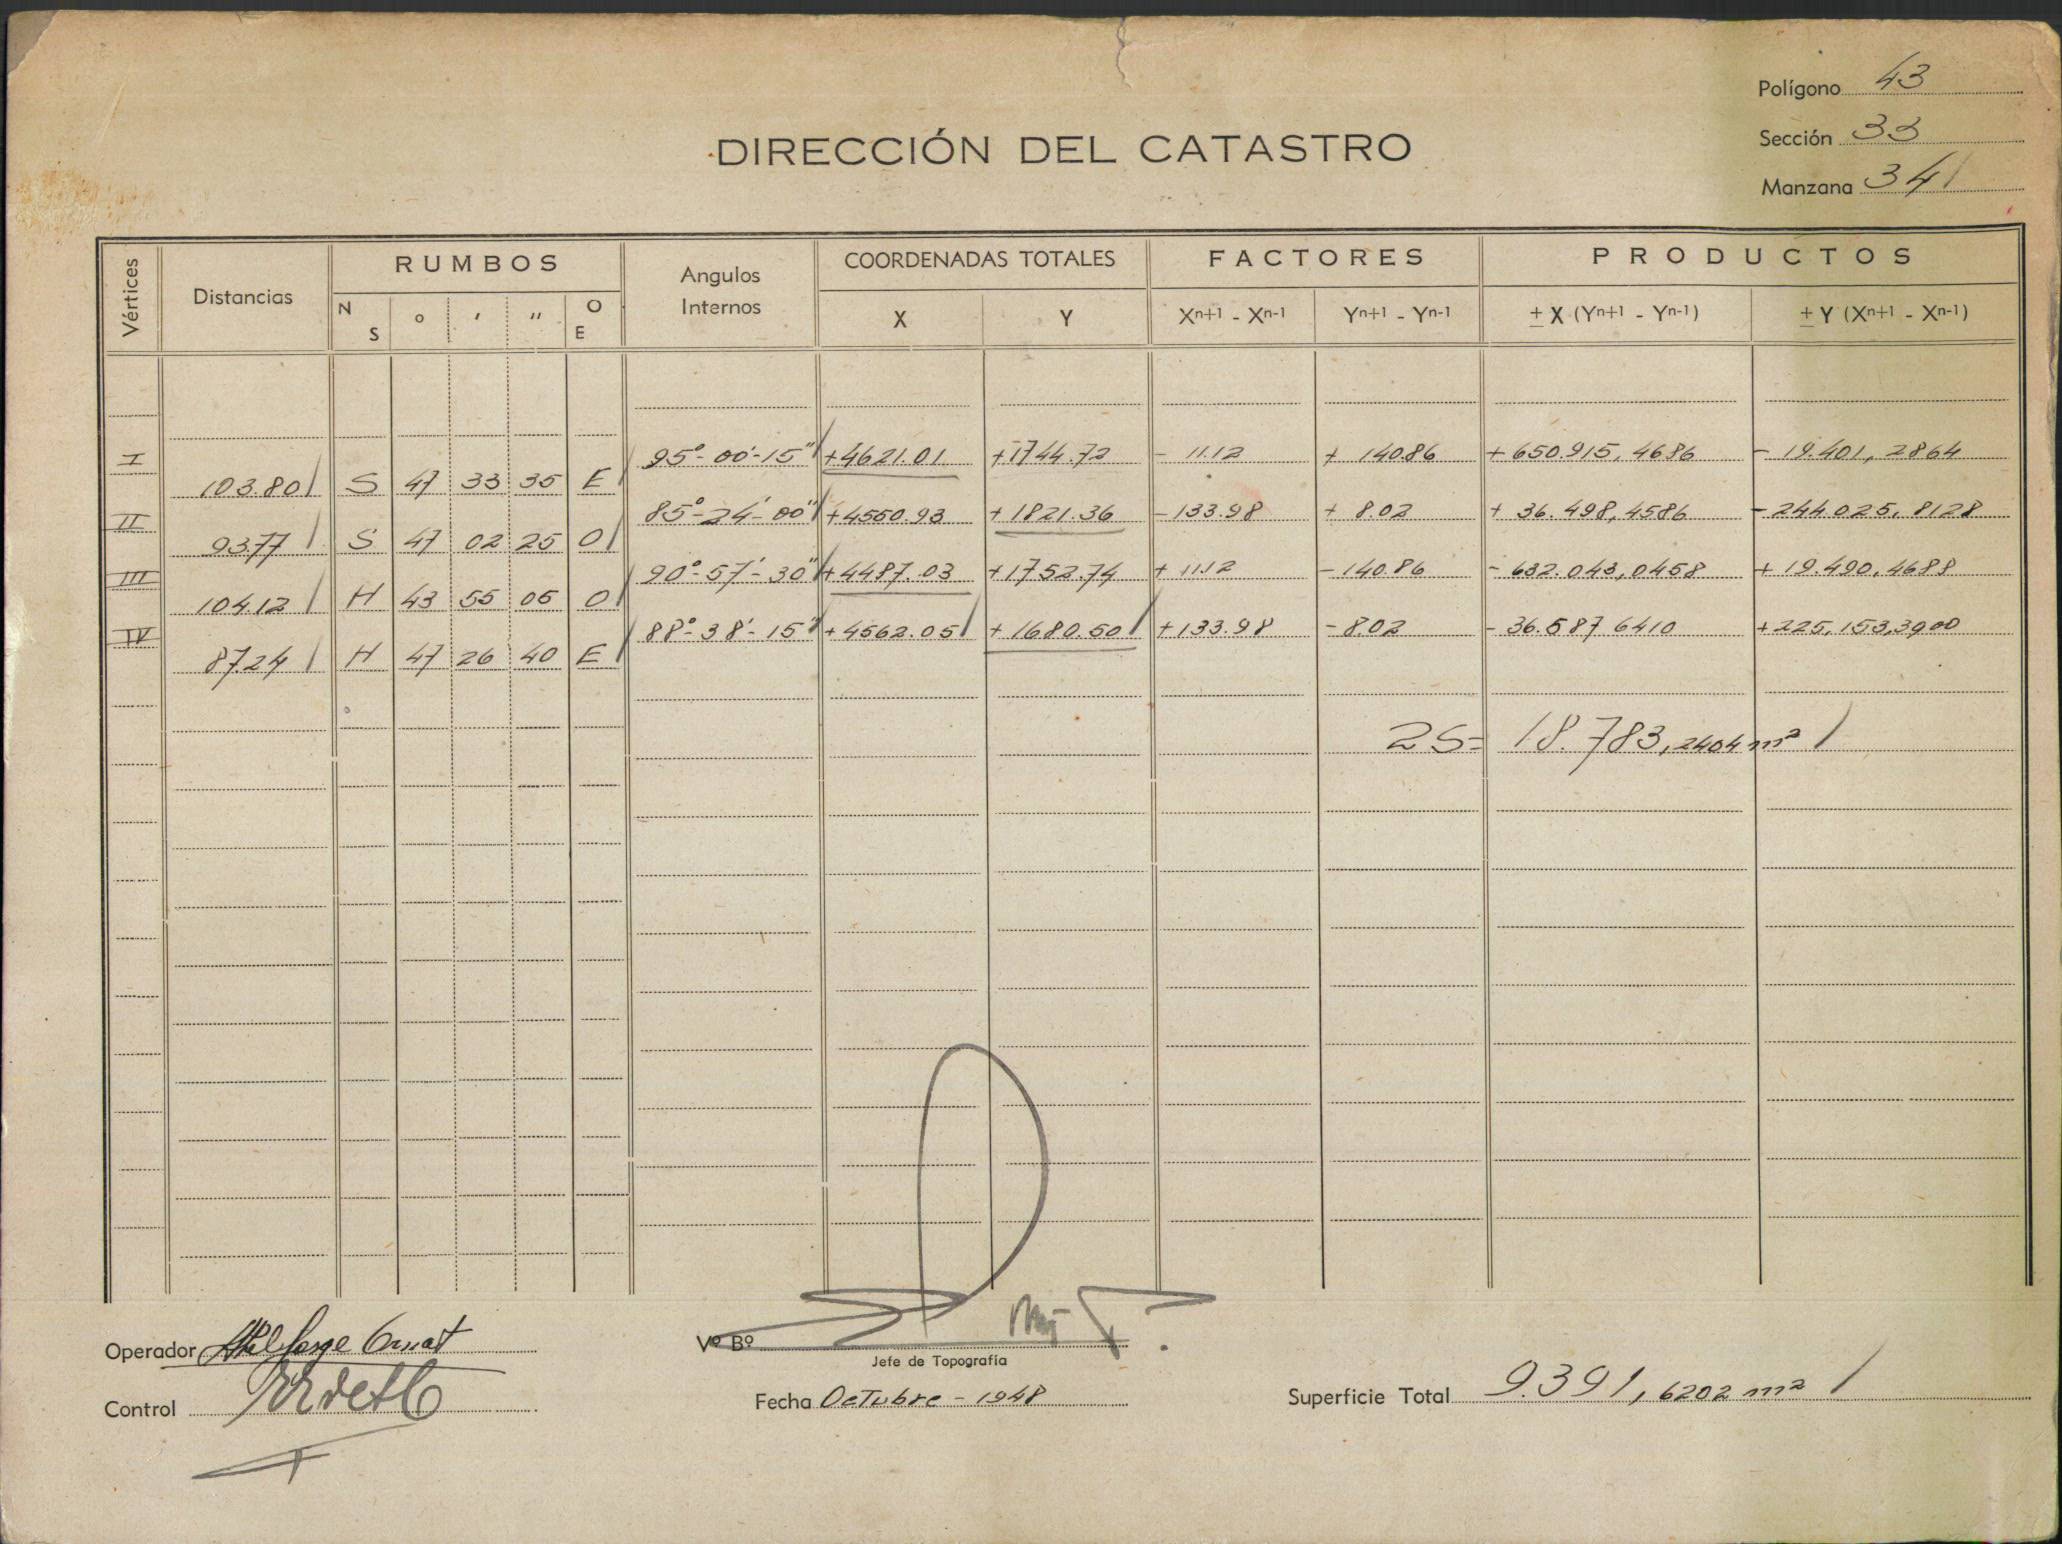 Polígono 43
Sección 33
Manzana 34
DIRECCIÓN DEL CATASTRO
Vértices Distancias RUMBOS Angulos Internos COORDENADAS TOTALES FACTORES PRODUCTOS
N S ° ' " O E X Y Xn+1 - Xn-1 Yn+1 - Yn-1 ± X (Yn+1 - Yn-1) ± Y (Xn+1 - Xn-1)
I 95°-00'-15" +4621.01 +1744.72 - 11.12 + 140.86 +650.915,4686 - 19.401,2864
103.80 S 47 33 35 E
II 85°-24'-00" +4550.93 +1821.36 -133.98 + 8.02 + 36.498,4586 -244.025,8128
93.77 S 47 02 25 O
III 90°-57'-30" +4487.03 +1752.74 + 11.12 -140.86 -632.043,0458 + 19.490,4688
104.12 N 43 55 05 O
IV 88°-38'-15" +4562.05 +1680.50 +133.98 -8.02 -36.587 6410 +225.153,3900
87.24 N 47 26 40 E
2S= 18.783,2404 m²
Operador
Vº Bº
Jefe de Topografía
Control
Fecha Octubre - 1948
Superficie Total 9.391,6202 m²